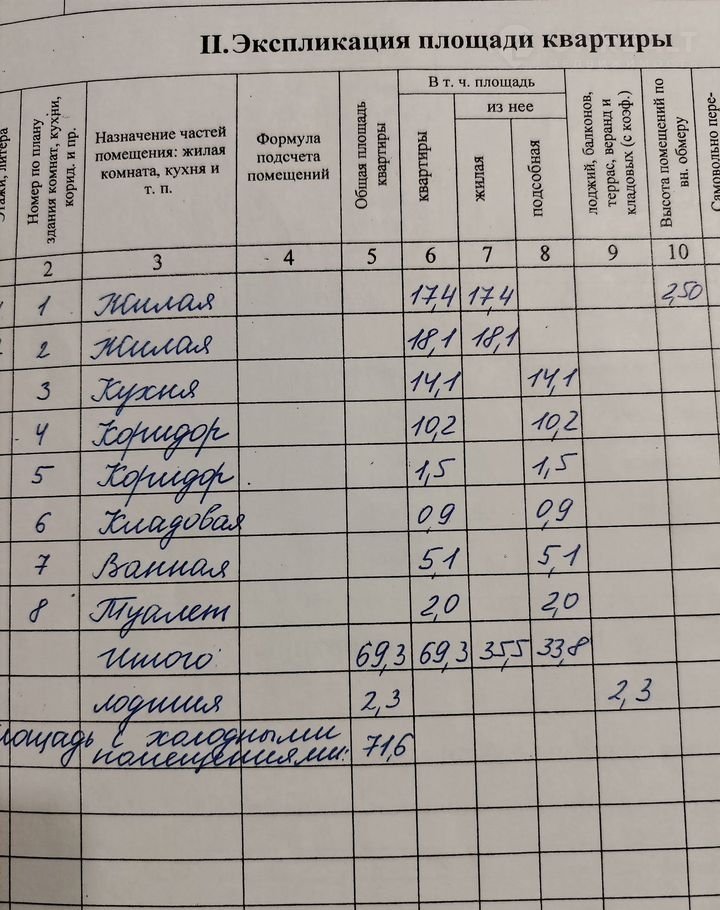 II.Экспликация площади квартиры
Этажи, литера
Номер по плану здания комнат, кухни, корид, и пр.
Назначение частей
помещения: жилая
комната, кухня и
т. п.
Формула
подсчета
помещений
Общая площадь квартиры
В т. ч. площадь
квартиры
из нее
жилая
подсобная
лоджий, балконов, террас, веранд и кладовых (с коэф.)
Высота помещений по вн. обмеру
Самовольно пере-
2 3 4 5 6 7 8 9 10
1 Жилая 17,4 17,4 2,50
2 Жилая 18,1 18,1
3 Кухня 14,1 14,1
4 Коридор 10,2 10,2
5 Коридор 1,5 1,5
6 Кладовая 0,9 0,9
7 Ванная 5,1 5,1
8 Туалет 2,0 2,0
Итого 69,3 69,3 35,5 33,8
лоджия 2,3 2,3
лощадь с холодными
помещениями: 71,6